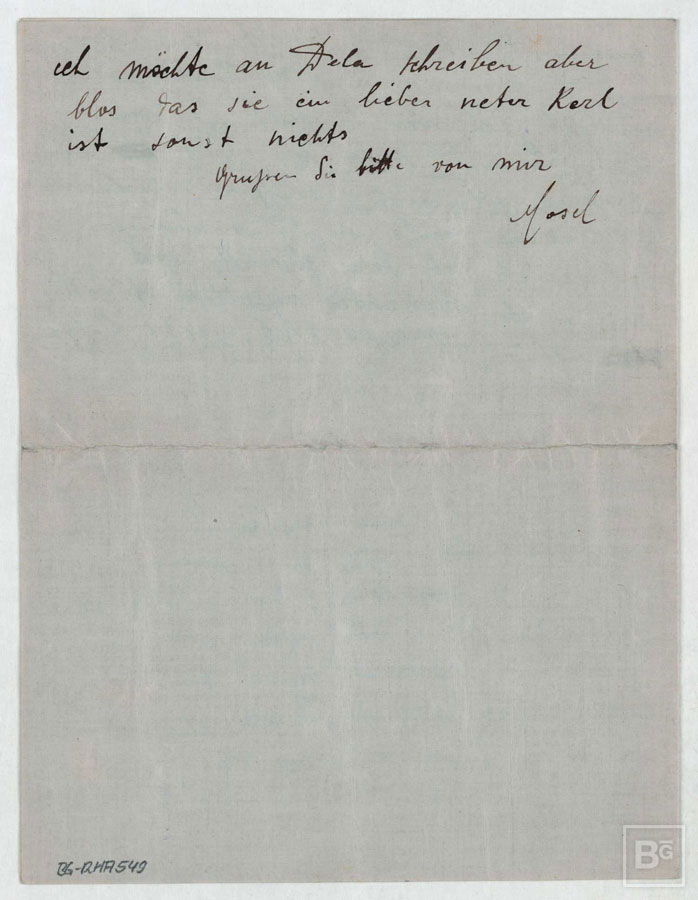 ich möchte an Dela schreiben aber
blos das sie ein lieber neter Kerl
ist sonst nichts
Grüßen Sie bitte von mir
Mosel
BG-RHA 549
BG